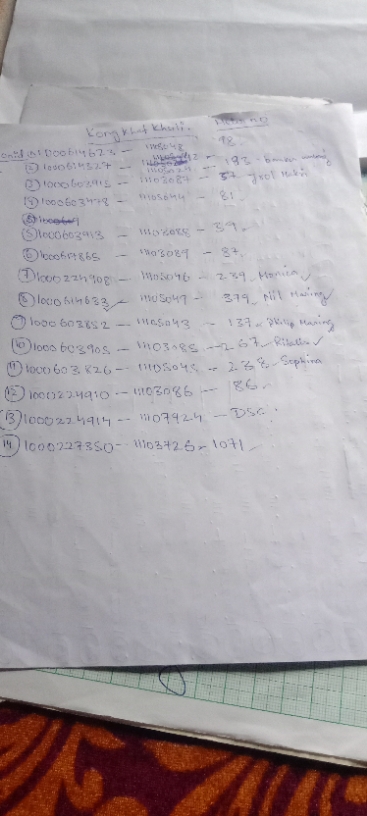 Kongkhat Khuli.
1000614623 - 11105048 98.
② 1000614327 - - 193 -
③ 1000603915 - 11103087 - 37
④ 1000603478 - 11105044 - 81
⑤ 1000603913 - 11103088 - 39.
⑥ - 11103089 - 37.
⑦ 1000224908 - 11105046 - 239 Monica ✓
⑧ 1000614633 ✓ - 11105047 - 379 Nil Maring
⑨ 1000603852 - 11105043 - 137. Dilip Maring
⑩ 1000603905 - 11103085 - 267. ✓
⑪ 1000603826 - 11105045 - 238 Sophina
⑫ 1000224910 - 11103086 - 86.
⑬ 1000224914 - 11107924 - DSC.
⑭ 1000227350 - 11103726 - 1071